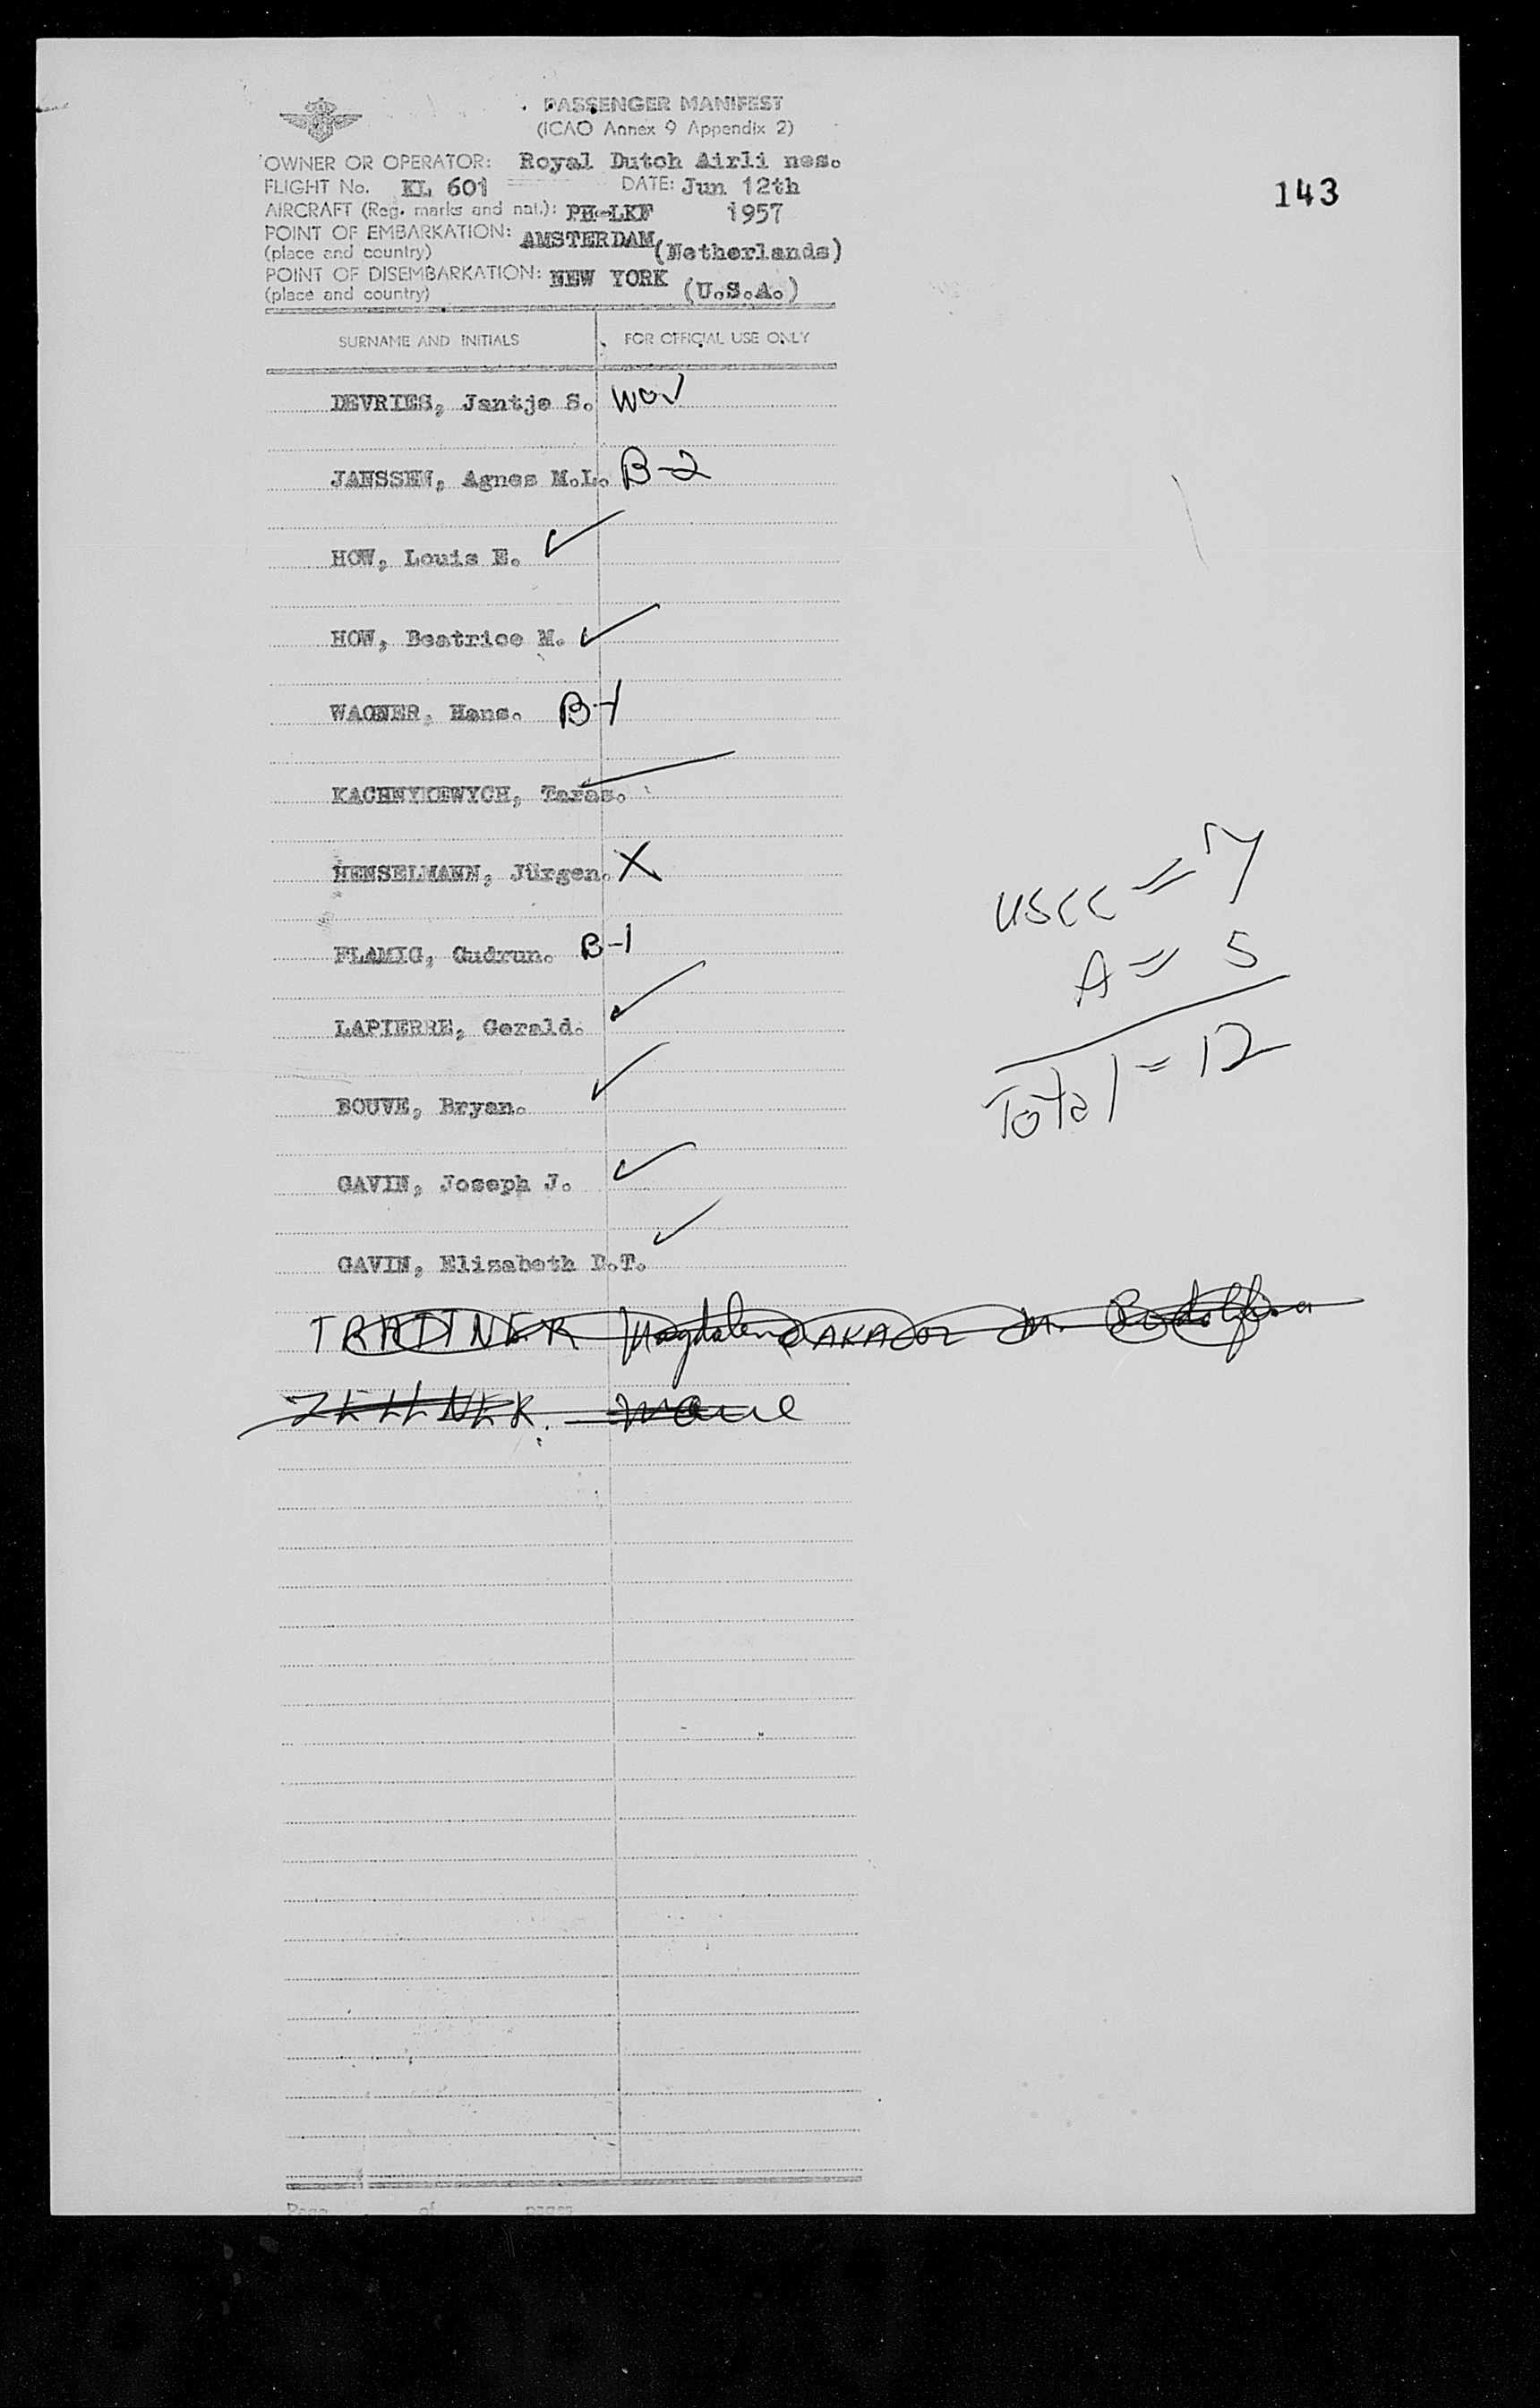 PASSENGER MANIFEST
(ICAO Annex 9 Appendix 2)
OWNER OR OPERATOR: Royal Dutch Airli nes.
FLIGHT No. KL 601 DATE: Jun 12th
143
AIRCRAFT (Reg. marks and nat.): PH-LKF 1957
POINT OF EMBARKATION: AMSTERDAM (Netherlands)
(place and country)
POINT OF DISEMBARKATION: NEW YORK (U.S.A.)
(place and country)
SURNAME AND INITIALS FOR OFFICIAL USE ONLY
DEVRIES, Jantje S.
JANSSEN, Agnes M.L. B-2
HOW, Louis E. ✓
HOW, Beatrice M. ✓
WAGNER, Hans. B-1
KACHNYKEWYCH, Taras. ✓
HENSELMANN, Jürgen. X
FLAMIG, Gudrun. B-1
LAPIERRE, Gerald. ✓
BOUVE, Bryan. ✓
GAVIN, Joseph J. ✓
GAVIN, Elizabeth D.T. ✓
USCC = 7
A = 5
Total = 12
Magdalena AKA
ZELLNER.
Page of pages